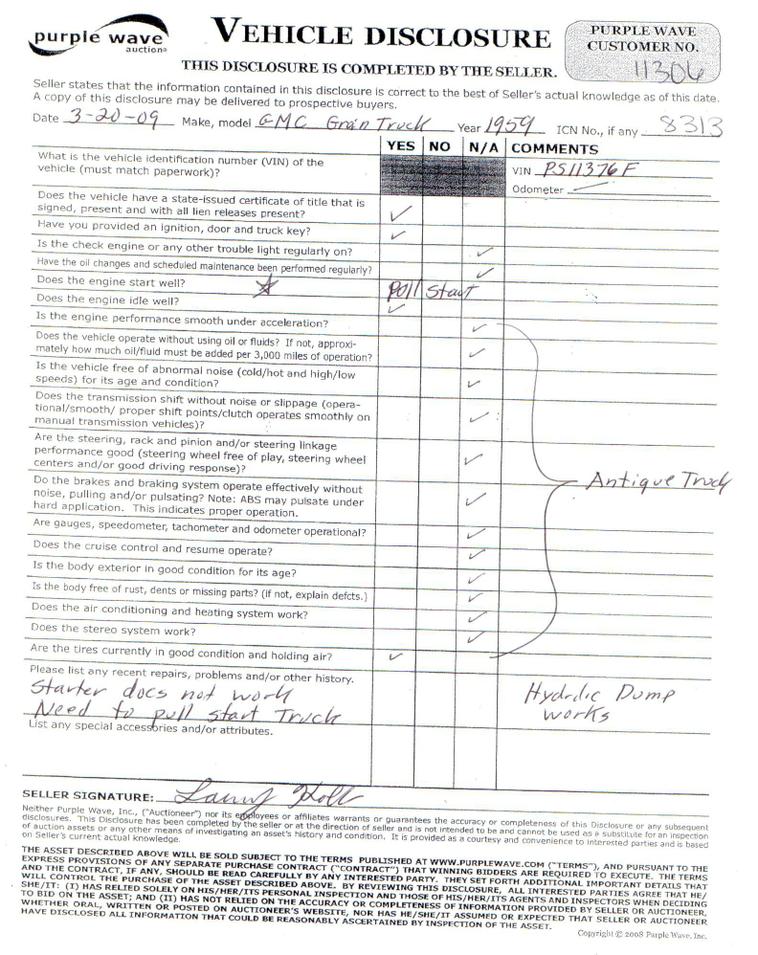 purple wave
auction®
VEHICLE DISCLOSURE
THIS DISCLOSURE IS COMPLETED BY THE SELLER.
PURPLE WAVE
CUSTOMER NO.
11306
Seller states that the information contained in this disclosure is correct to the best of Seller's actual knowledge as of this date.
A copy of this disclosure may be delivered to prospective buyers.
Date 3-20-09 Make, model GMC Grain Truck Year 1959 ICN No., if any 8313
YES NO N/A COMMENTS
What is the vehicle identification number (VIN) of the
vehicle (must match paperwork)?
VIN PS11376F
Odometer
Does the vehicle have a state-issued certificate of title that is
signed, present and with all lien releases present? ✓
Have you provided an ignition, door and truck key? ✓
Is the check engine or any other trouble light regularly on? ✓
Have the oil changes and scheduled maintenance been performed regularly? ✓
Does the engine start well? ☆ Pull Start
Does the engine idle well? ✓
Is the engine performance smooth under acceleration? ✓
Does the vehicle operate without using oil or fluids? If not, approxi-
mately how much oil/fluid must be added per 3,000 miles of operation? ✓
Is the vehicle free of abnormal noise (cold/hot and high/low
speeds) for its age and condition? ✓
Does the transmission shift without noise or slippage (opera-
tional/smooth/ proper shift points/clutch operates smoothly on
manual transmission vehicles)? ✓
Are the steering, rack and pinion and/or steering linkage
performance good (steering wheel free of play, steering wheel
centers and/or good driving response)? ✓
Antique Truck
Do the brakes and braking system operate effectively without
noise, pulling and/or pulsating? Note: ABS may pulsate under
hard application. This indicates proper operation. ✓
Are gauges, speedometer, tachometer and odometer operational? ✓
Does the cruise control and resume operate? ✓
Is the body exterior in good condition for its age? ✓
Is the body free of rust, dents or missing parts? (if not, explain defcts.) ✓
Does the air conditioning and heating system work? ✓
Does the stereo system work? ✓
Are the tires currently in good condition and holding air? ✓
Please list any recent repairs, problems and/or other history.
Starter does not work
Need to pull start Truck
Hydrolic Dump
works
List any special accessories and/or attributes.
SELLER SIGNATURE: Larry Holt
Neither Purple Wave, Inc., ("Auctioneer") nor its employees or affiliates warrants or guarantees the accuracy or completeness of this Disclosure or any subsequent
disclosures. This Disclosure has been completed by the seller or at the direction of seller and is not intended to be and cannot be used as a substitute for an inspection
of auction assets or any other means of investigating an asset's history and condition. It is provided as a courtesy and convenience to interested parties and is based
on Seller's current actual knowledge.
THE ASSET DESCRIBED ABOVE WILL BE SOLD SUBJECT TO THE TERMS PUBLISHED AT WWW.PURPLEWAVE.COM ("TERMS"), AND PURSUANT TO THE
EXPRESS PROVISIONS OF ANY SEPARATE PURCHASE CONTRACT ("CONTRACT") THAT WINNING BIDDERS ARE REQUIRED TO EXECUTE. THE TERMS
AND THE CONTRACT, IF ANY, SHOULD BE READ CAREFULLY BY ANY INTERESTED PARTY. THEY SET FORTH ADDITIONAL IMPORTANT DETAILS THAT
WILL CONTROL THE PURCHASE OF THE ASSET DESCRIBED ABOVE. BY REVIEWING THIS DISCLOSURE, ALL INTERESTED PARTIES AGREE THAT HE/
SHE/IT: (I) HAS RELIED SOLELY ON HIS/HER/ITS PERSONAL INSPECTION AND THOSE OF HIS/HER/ITS AGENTS AND INSPECTORS WHEN DECIDING
TO BID ON THE ASSET; AND (II) HAS NOT RELIED ON THE ACCURACY OR COMPLETENESS OF INFORMATION PROVIDED BY SELLER OR AUCTIONEER,
WHETHER ORAL, WRITTEN OR POSTED ON AUCTIONEER'S WEBSITE, NOR HAS HE/SHE/IT ASSUMED OR EXPECTED THAT SELLER OR AUCTIONEER
HAVE DISCLOSED ALL INFORMATION THAT COULD BE REASONABLY ASCERTAINED BY INSPECTION OF THE ASSET.
Copyright © 2008 Purple Wave, Inc.